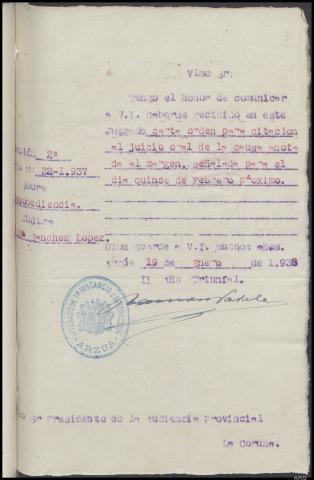 Vlmo Sr:
Tengo el honor de comunicar
a V.I. Haberse recicido en este
Juzgado carta orden para citacion
al juicio oral de la causa anota
da al margen, señalada para el
dia quince de Febrero próximo.
2ª
32-1.937
sobre
contra
Sanchez Lopez.
Dios guarde a V.I. muchos años.
19 de Enero de 1.938
II Año Triunfal.
JUZGADO DE 1ª INSTANCIA E INSTRUCCION
ARZUA
Sr Presidente de la Audiencia Provincial
La Coruña.